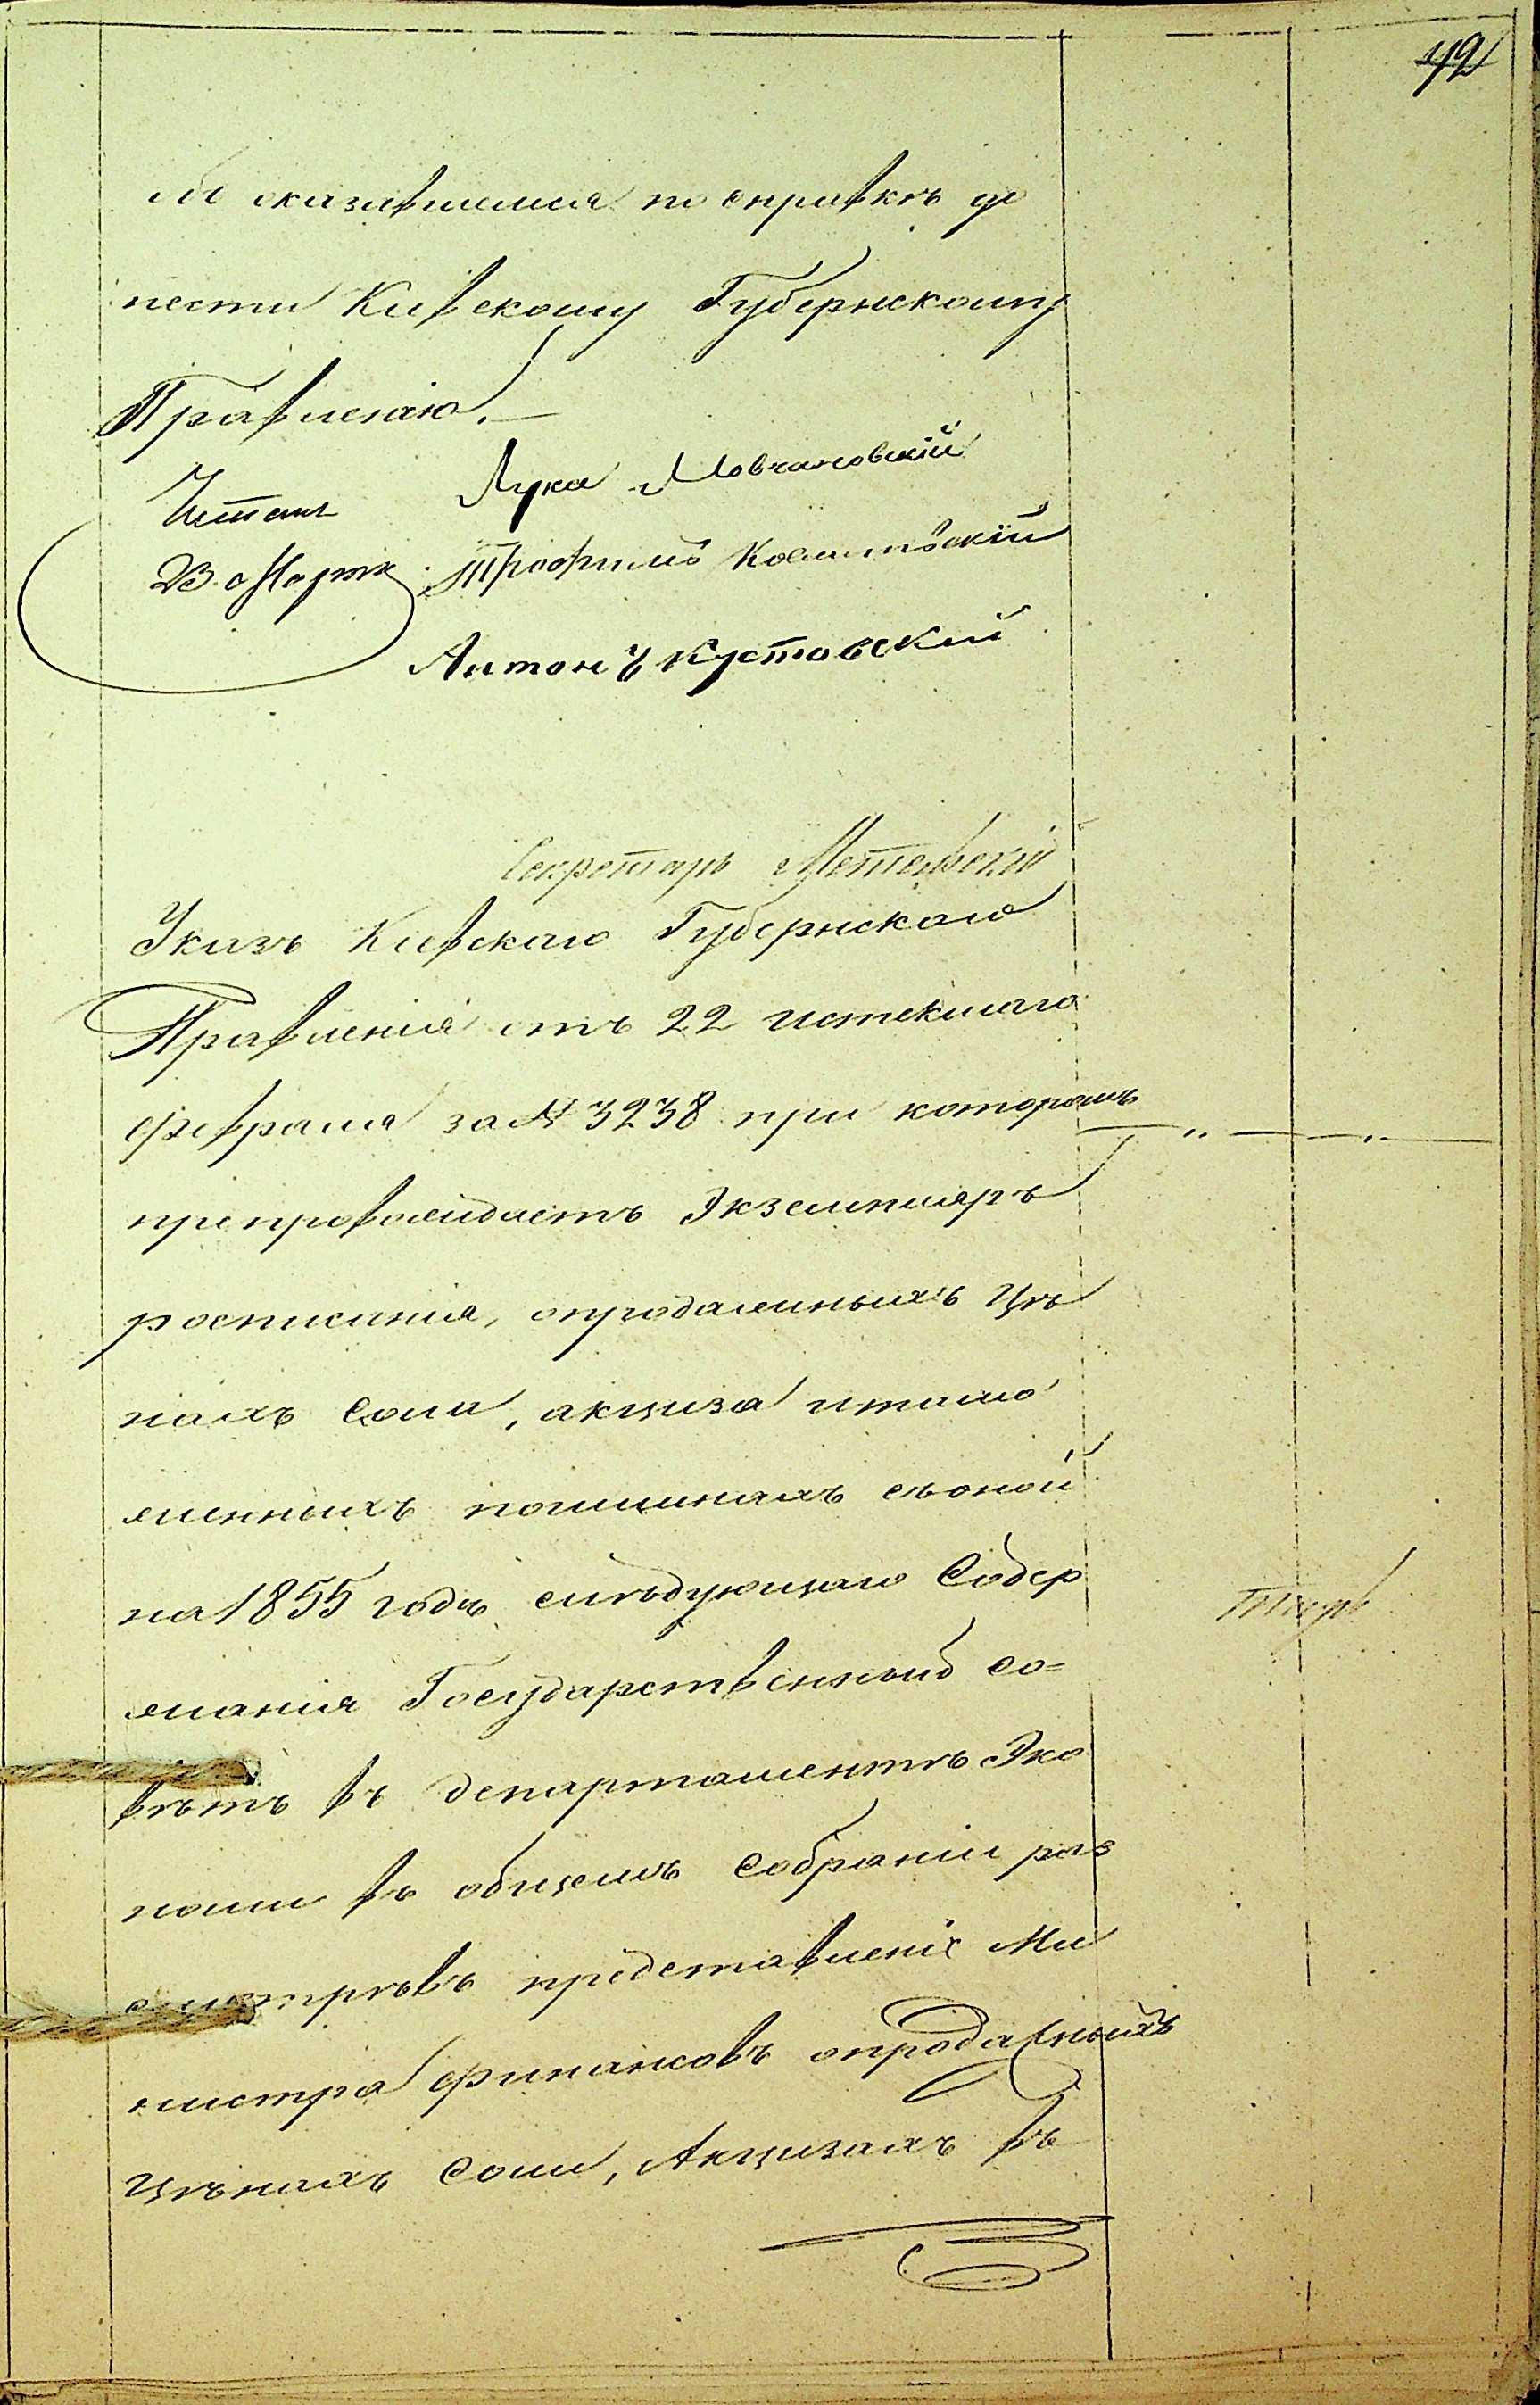 42
оказавшемся по справкѣ до
нести Кіевскому Губернскому
Правленію.
Читалъ Лука Мовчановский
Трофимъ
Антонъ Кустовский
Секретарь
Указъ Кіевскаго Губернскаго
Правленія отъ 22 истекшаго
февраля за № 3238 при которомъ
препровождаетъ Экземпляръ
росписанія, опродаженныхъ цѣ
нахъ соли, акциза итамо
женныхъ пошлинахъ съоной
на 1855 годъ слѣдующаго Содер
жанія Государственный Со=
вѣтъ въ департаментѣ Эко
номіи въ общемъ собраніи раз
смотрѣвъ представленіе Ми
нистра финансовъ опродажныхъ
цѣнахъ Соли, Акцизахъ въ